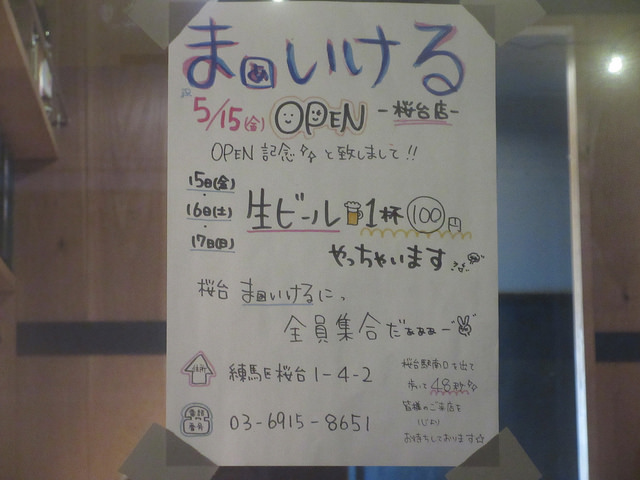 まぁいける
5/15(金) OPEN -桜台店-
OPEN記念 と致しまして!!
15日(金)
・
16日(土)
・
17日(日)
生ビール 1杯 100円
やっちゃいます
桜台 まぁいけるにっ
全員集合だぁぁぁー
住所
練馬区桜台1-4-2
電話
番号
03-6915-8651
桜台駅南口を出て
歩いて48秒
皆様のご来店を
心より
お待ちしております☆